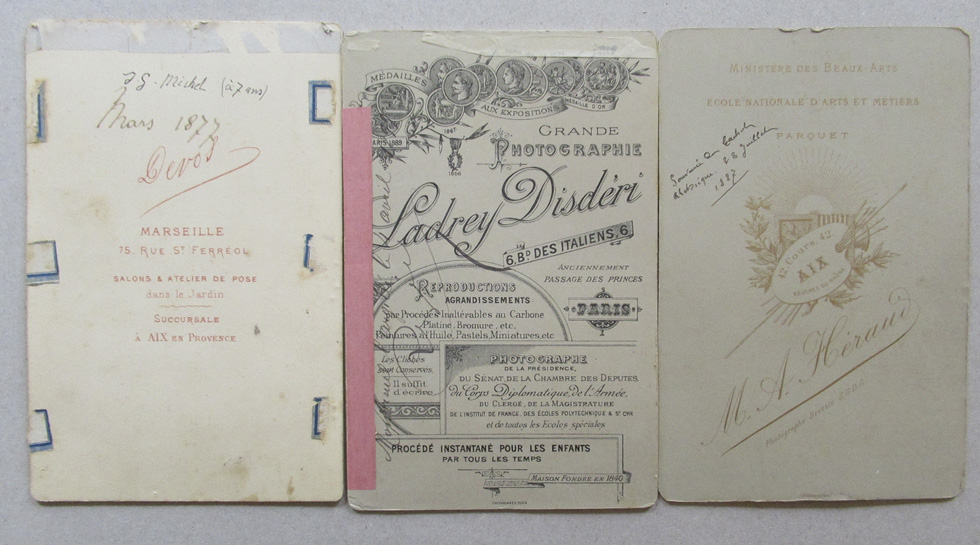 J G. Michel (à 7 ans)
Mars 1877
Devos
MARSEILLE
75. RUE ST FERRÉOL
SALONS & ATELIER DE POSE
dans le Jardin
SUCCURSALE
À AIX EN PROVENCE
MÉDAILLES
AUX EXPOSITIONS
MÉDAILLE D'OR
PARIS 1889
1867
1856
GRANDE
PHOTOGRAPHIE
Ladrey Disdéri
6, BD DES ITALIENS, 6,
ANCIENNEMENT
PASSAGE DES PRINCES
PARIS
REPRODUCTIONS
AGRANDISSEMENTS
par Procédés Inaltérables au Carbone
Platine, Bromure, etc.
Peintures à l'Huile, Pastels, Miniatures, etc
Les Clichés
sont Conservés,
Il suffit
d'écrire
PHOTOGRAPHE
DE LA PRÉSIDENCE,
DU SÉNAT, DE LA CHAMBRE DES DÉPUTÉS
du Corps Diplomatique, de l'Armée,
DU CLERGÉ, DE LA MAGISTRATURE
DE L'INSTITUT DE FRANCE, DES ÉCOLES POLYTECHNIQUE & ST CYR
et de toutes les Ecoles spéciales
PROCÉDÉ INSTANTANÉ POUR LES ENFANTS
PAR TOUS LES TEMPS
MAISON FONDÉE EN 1840
avril
MINISTÈRE DES BEAUX-ARTS
ECOLE NATIONALE D'ARTS ET MÉTIERS
PARQUET
Souvenir du
28 Juillet
1887
42 Cours, 42
AIX
BOUCHES DU RHÔNE
M. A. Héraud
Photographe Breveté S.G.D.G.